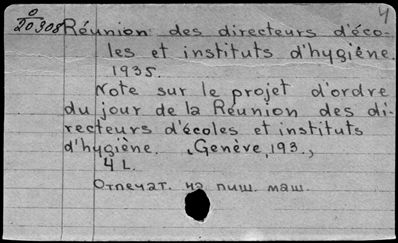 0/20308
4
Réunion des directeurs d'éco-
les et instituts d'hygiène.
1935.
Note sur le projet d'ordre
du jour de la Réunion des di-
recteurs d'écoles et instituts
d'hygiène. (Genève, 193.,
4 L.
Отпечат. на пиш. маш.